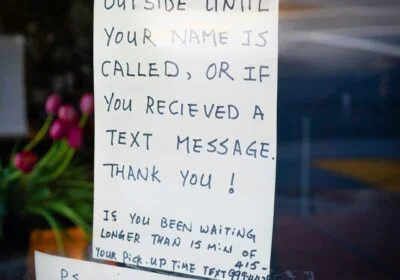 OUTSIDE UNTIL
YOUR NAME IS
CALLED, OR IF
YOU RECIEVED A
TEXT MESSAGE.
THANK YOU !
IS YOU BEEN WAITING
LONGER THAN 15 MIN OF
YOUR PICK.UP TIME TEXT 415-
PS